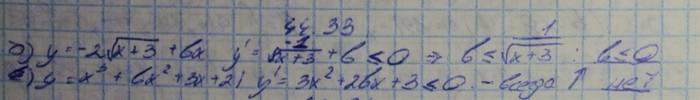 44.33
а) y = -2√x+3 + bx y' = -1/√x+3 + b ≤ 0 ⇒ b ≤ 1/√x+3 : b ≤ 0
б) y = x³ + bx² + 3x + 21 y' = 3x² + 2bx + 3 ≤ 0. - всегда ↑ нет